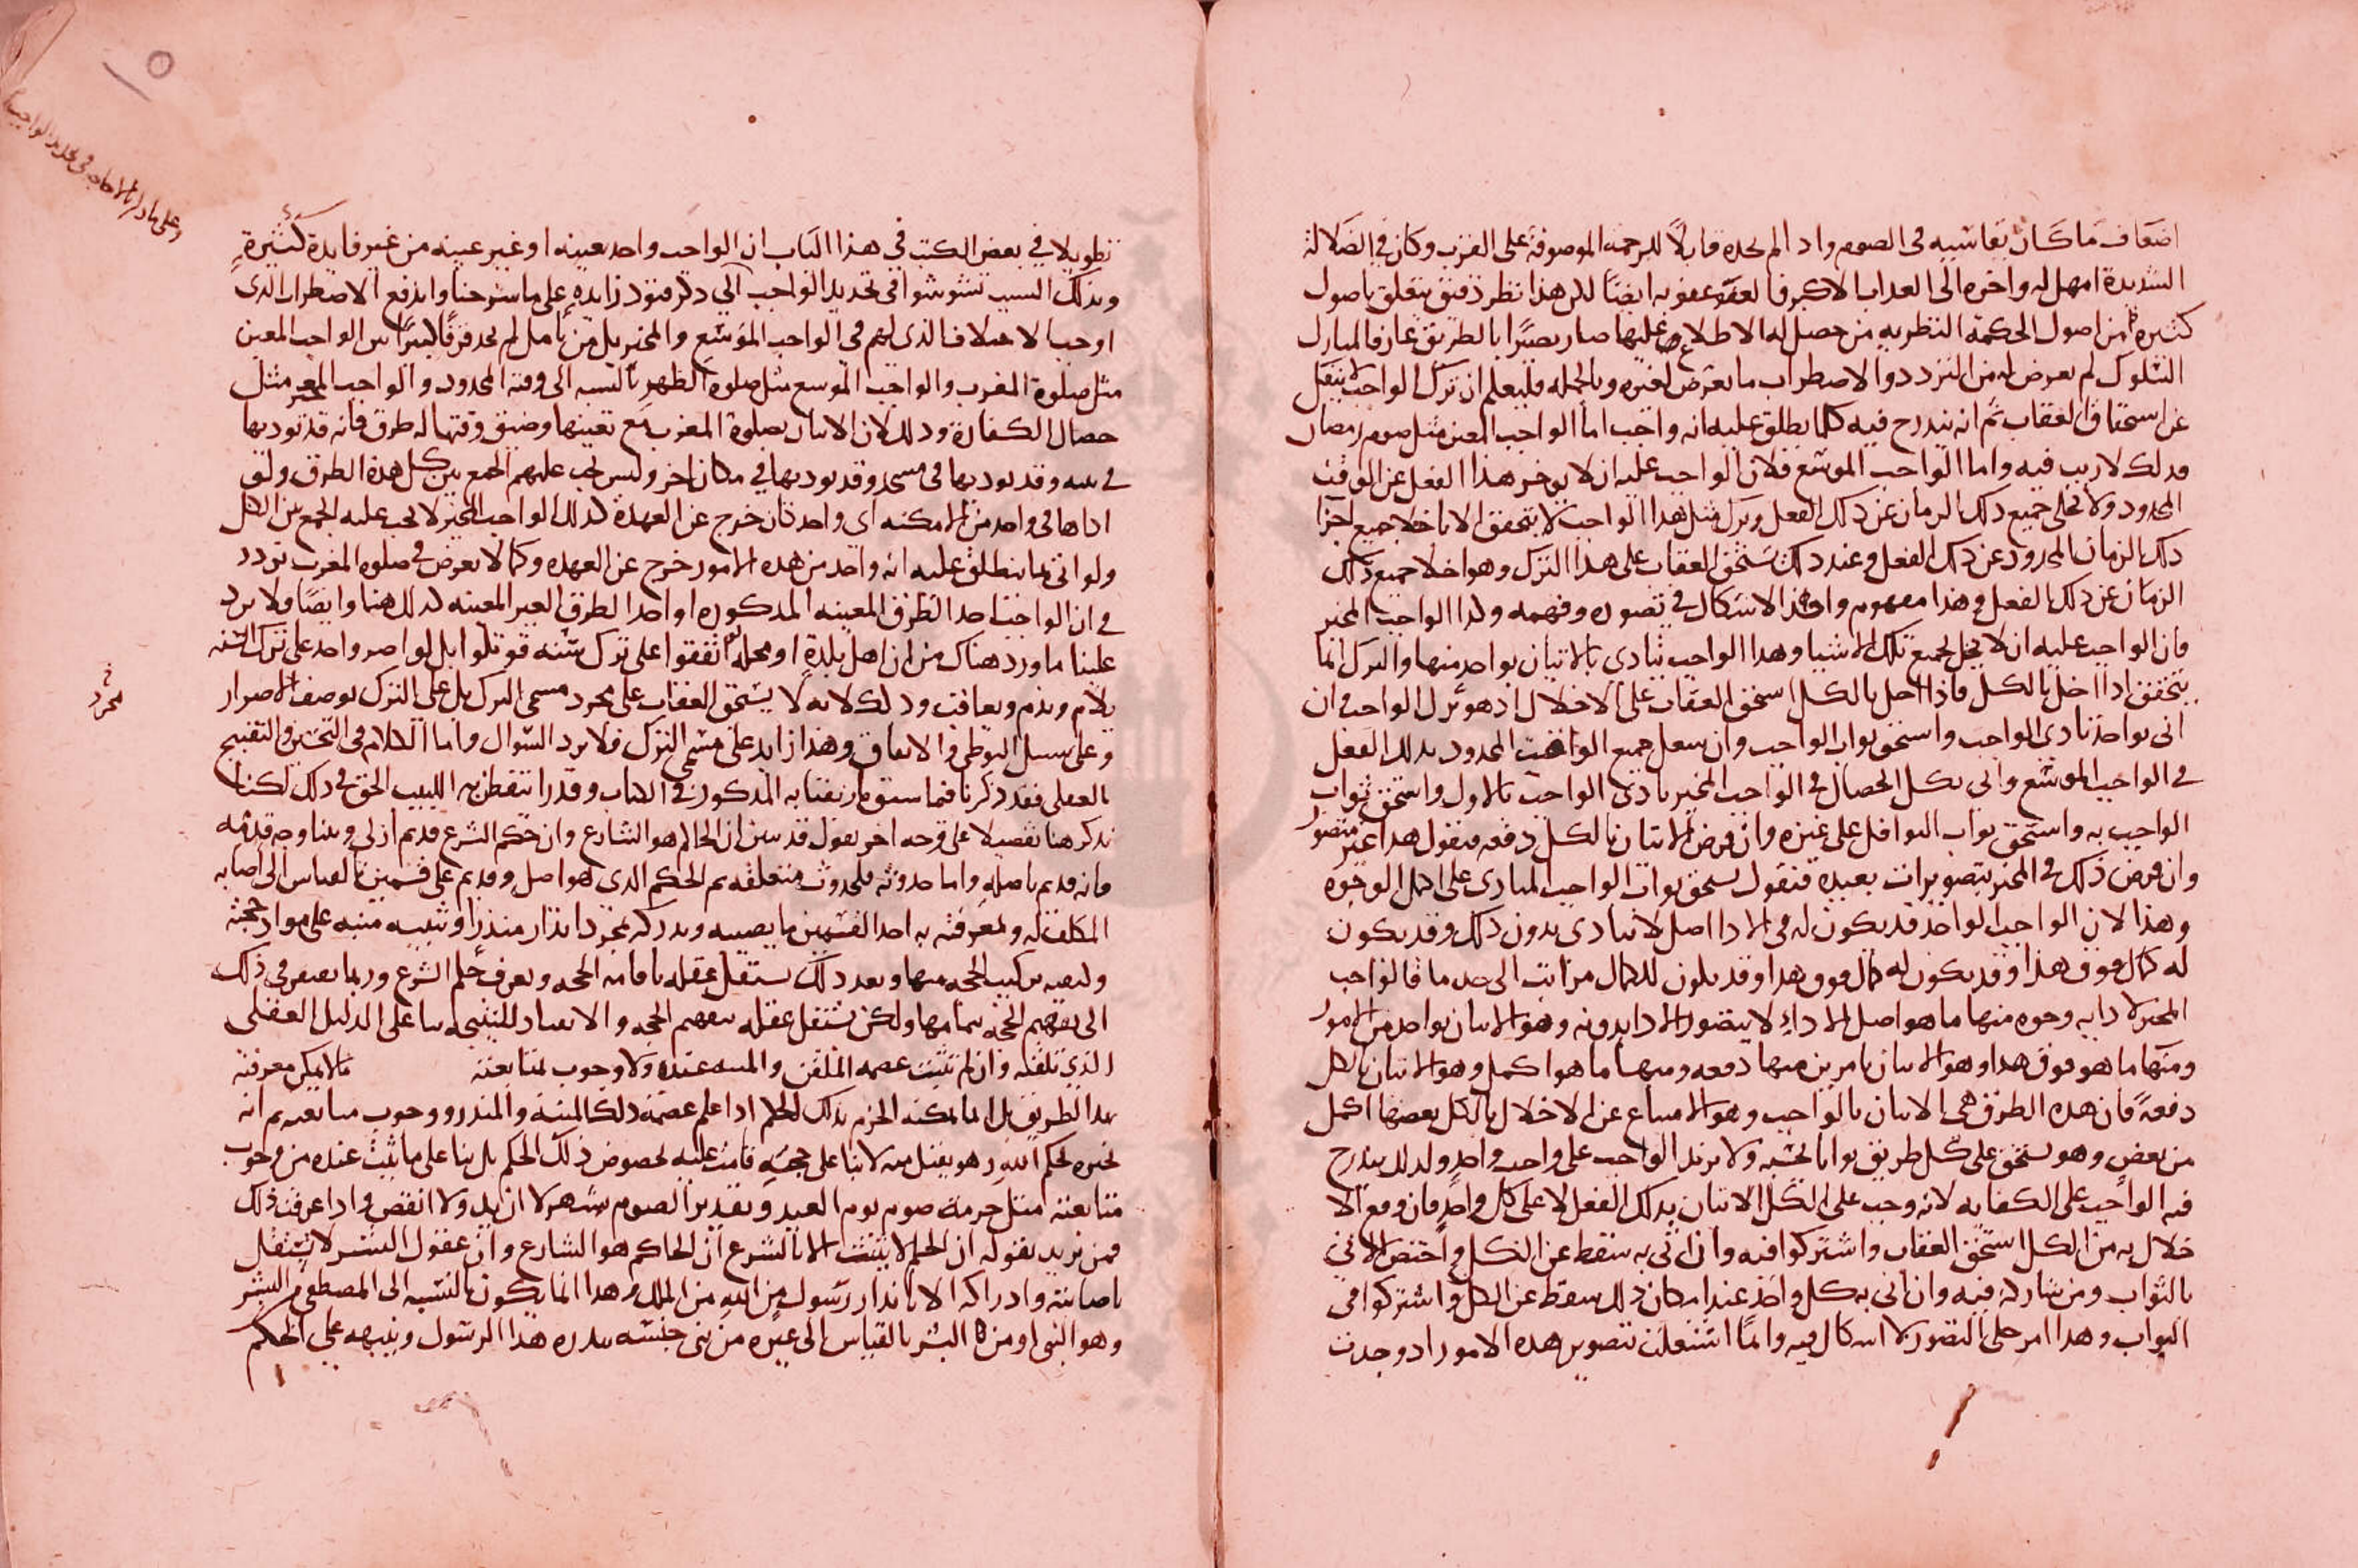 اضعاف ما كان يقاسيه فى الصوم واذا لم يجده قابلا للرحمة الموصوفة على القرب وكان فى الضلالة
الشديدة امهل له واخره الى العذاب الاكبر فالعفو عقوبه ايضا لكن هذا نظر دقيق يتعلق باصول
كثيرة من اصول الحكمة النظريه من حصل له الاطلاع عليها صار بصيرا بالطريق عارفا لمبارك
السلوك لم يعرض له من التردد والاضطراب ما يعرض لغيره وبالجمله فليعلم ان ترك الواجب لا ينفك
عن استحقاق العقاب ثم انه يندرج فيه كلما يطلق عليه انه واجب اما الواجب المعين مثل صوم رمضان
فذلك لا ريب فيه واما الواجب الموسع فلان الواجب عليه ان لا يوخر هذا الفعل عن الوقت
المحدود ولا يخلى جميع ذلك الزمان عن ذلك الفعل وترك مثل هذا الواجب لا يتحقق الا باخلا جميع اجزا
ذلك الزمان المحدود عن ذلك الفعل وعند ذلك يستحق العقاب على هذا الترك وهو اخلا جميع ذلك
الزمان عن ذلك الفعل وهذا مفهوم الاشكال فى تصوره وفهمه وكذا الواجب المخير
فان الواجب عليه ان لا يخل بجميع تلك الاشيا وهذا الواجب يتادى بالاتيان بواحد منها والترك انما
يتحقق اذا اخل بالكل فاذا اخل بالكل استحق العقاب على الاخلال اذ هو ترك الواجب وان
اتى بواحد تادى الواجب واستحق ثواب الواجب وان شغل جميع الوقت المحدود بذلك الفعل
فى الواجب الموسع واتى بكل الخصال فى الواجب المخير تادى الواجب بالاول واستحق ثواب
الواجب به واستحق ثواب النوافل على غيره وان فرض الاتيان بالكل دفعه فنقول هذا غير متصور
وان فرض ذلك فى المخير بتصويرات بعيده فنقول يستحق ثواب الواجب المتادى على اكمل الوجوه
وهذا لان الواجب الواحد قد يكون له فى الادا اصل لا يتادى بدون ذلك وقد يكون
له كمال فوق هذا وقد يكون له كمال فوق هذا وقد يكون للكمال مراتب الى حد ما فالواجب
المخير لادايه وجوه منها ما هو اصل الاداء لا يتصور الادا بدونه وهو الاتيان بواحد من الامور
ومنها ما هو فوق هذا وهو الاتيان بامرين منها دفعه ومنها ما هو اكمل وهو الاتيان بالكل
دفعة فان هذه الطرق هى الاتيان بالواجب وهو الامتناع عن الاخلال بالكل بعضها اكمل
من بعض وهو يستحق على كل طريق ثوابا بحسبه ولا يزيد الواجب على واجب واحد ولذلك يندرج
فيه الواجب على الكفايه لانه وجب على الكل الاتيان بذلك الفعل لا على كل واحد فان وقع الا
خلال به من الكل استحق العقاب واشتركوا فيه وان اتى به سقط عن الكل واختص الاتى
بالثواب ومن شاركه فيه وان اتى به كل واحد عند امكان ذلك سقط عن الكل واشتركوا فى
الثواب وهذا امر جلى التصور لا اشكال فيه وانما اشتغلت بتصوير هذه الامور اذ وجدت
تطويلا فى بعض الكتب فى هذا الباب ان الواجب واحد بعينه او غير عينه من غير فايدة كثيرة
وبذلك السبب تشوشوا فى تحديد الواجب الى ذكر قيود زايدة على ما شرحنا واندفع الاضطراب الذى
اوجب الاختلاف الذى لهم فى الواجب الموسع والمخير بل من تامل لم يجد فرقا كثيرا بين الواجب المعين
مثل صلوة المغرب والواجب الموسع مثل صلوة الظهر بالنسبه الى وقته المحدود والواجب المخير مثل
خصال الكفارة وذلك لان الاتيان بصلوة المغرب مع تعينها وضيق وقتها له طرق فانه قد يوديها
فى بيته وقد يوديها فى مسجد وقد يوديها فى مكان اخر وليس يجب عليهم الجمع بين كل هذه الطرق ولو
اداها فى واحد من الامكنه اى واحد كان خرج عن العهدة كذلك الواجب المخير لا يجب عليه الجمع بين الكل
ولو اتى بما ينطلق عليه انه واحد من هذه الامور خرج عن العهده وكما لا يعرض فى صلوه المغرب تردد
فى ان الواجب احد الطرق المعينه المذكوره او احد الطرق الغير المعينه كذلك هنا وايضا فلا يرد
علينا ما ورد هناك من ان اهل بلدة او محله لو اتفقوا على ترك سنه قوتلوا بل لو اصر واحد على ترك السنه
يلام ويذم ويعاقب وذلك لانه لا يستحق العقاب على مجرد مسمى الترك بل على الترك بوصف الاصرار
وعلى سبيل التوطى والاتفاق وهذا زايد على مسمى الترك فلا يرد السوال واما الكلام فى التحسين والتقبيح
العقلى فقد ذكرنا فيما سبق المذكور فى الكتاب وقدرا يتفطن به اللبيب الحق فى ذلك لكنا
نذكر هنا تفصيلا على وجه اخر نقول قد تبين ان الحاكم هو الشارع وان حكم الشرع قديم ازلى وبينا وجه قدمه
فانه قديم باصله واما حدوثه فلحدوث متعلقه ثم الحكم الذى هو اصل وقديم على قسمين بالقياس الى اصابه
المكلف له ولمعرفته به احد القسمين ما يصيبه ويدركه بمجرد انذار منذر او تنبيه منبه على مواد حجته
وكيفيه تركيب الحجه منها وبعد ذلك يستقل عقله باقامه الحجه ويعرف حكم الشرع وربما يفتقر فى ذلك
الى تفهيم الحجة بتمامها ولكن يستقل عقله بتفهم الحجه والانقياد للنتيجه بنا على الدليل العقلى
الذى تلقنه وان لم تثبت عصمه الملقن والمنبه عنده ولا وجوب لمتابعته ما لا يمكن معرفته
بهذا الطريق بل انما يمكنه الجزم بذلك الحكم اذا علم عصمة ذلك المنبه والمنذر ووجوب متابعته ثم انه
يخبره بحكم الله وهو يقبل منه لا بنا على حجة قامت عليه لخصوص ذلك الحكم بل بنا على ما يثبت عنده من وجوب
متابعته مثل حرمة صوم يوم العيد وتقدير الصوم بشهر لا ازيد ولا انقص واذا عرفت ذلك
فمن يريد بقوله ان الحكم لا يثبت الا بالشرع ان الحاكم هو الشارع وان عقول البشر لا تستقل
باصابته وادراكه الا بانذار رسول من الله من الملك وهذا انما يكون بالنسبه الى المصطفى من البشر
وهو النبى او من البشر بالقياس الى غيره من بنى جنسه ينذره هذا الرسول وينبهه على الحكم
مجرد